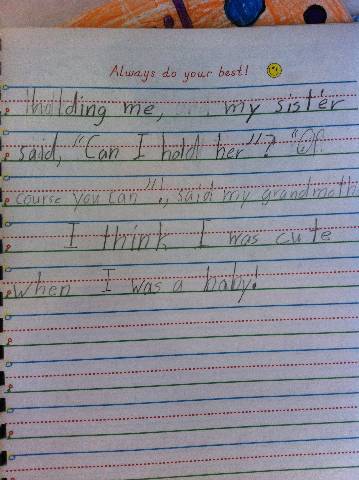 Always do your best!
holding me, my sister
said, "Can I hold her"? "Of
course you can"!, said my grandmoth
I think I was cute
when I was a baby!